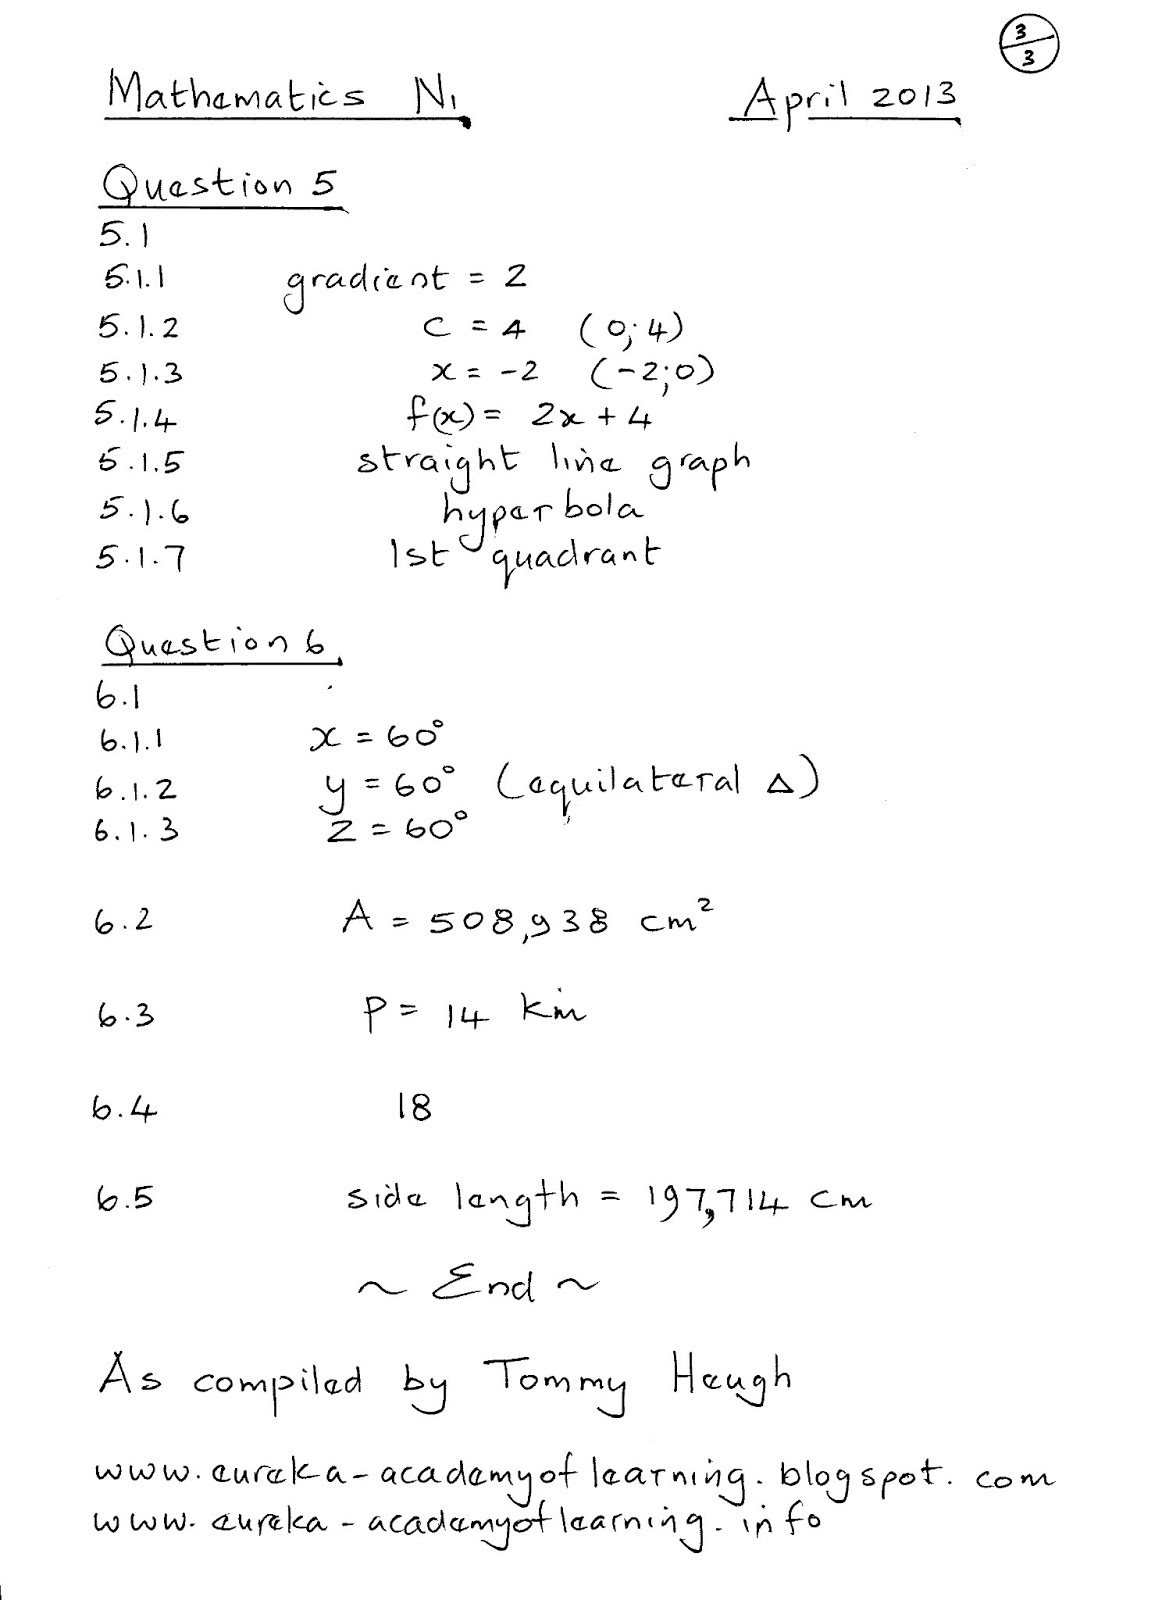 3/3
Mathematics N1 April 2013
Question 5
5.1
5.1.1 gradient = 2
5.1.2 c = 4 (0;4)
5.1.3 x = -2 (-2;0)
5.1.4 f(x) = 2x + 4
5.1.5 straight line graph
5.1.6 hyperbola
5.1.7 1st quadrant
Question 6
6.1
6.1.1 x = 60°
6.1.2 y = 60° (equilateral Δ)
6.1.3 z = 60°
6.2 A = 508,938 cm²
6.3 P = 14 km
6.4 18
6.5 side length = 197,714 cm
~ End ~
As compiled by Tommy Heugh
www.eureka-academyoflearning.blogspot.com
www.eureka-academyoflearning.info